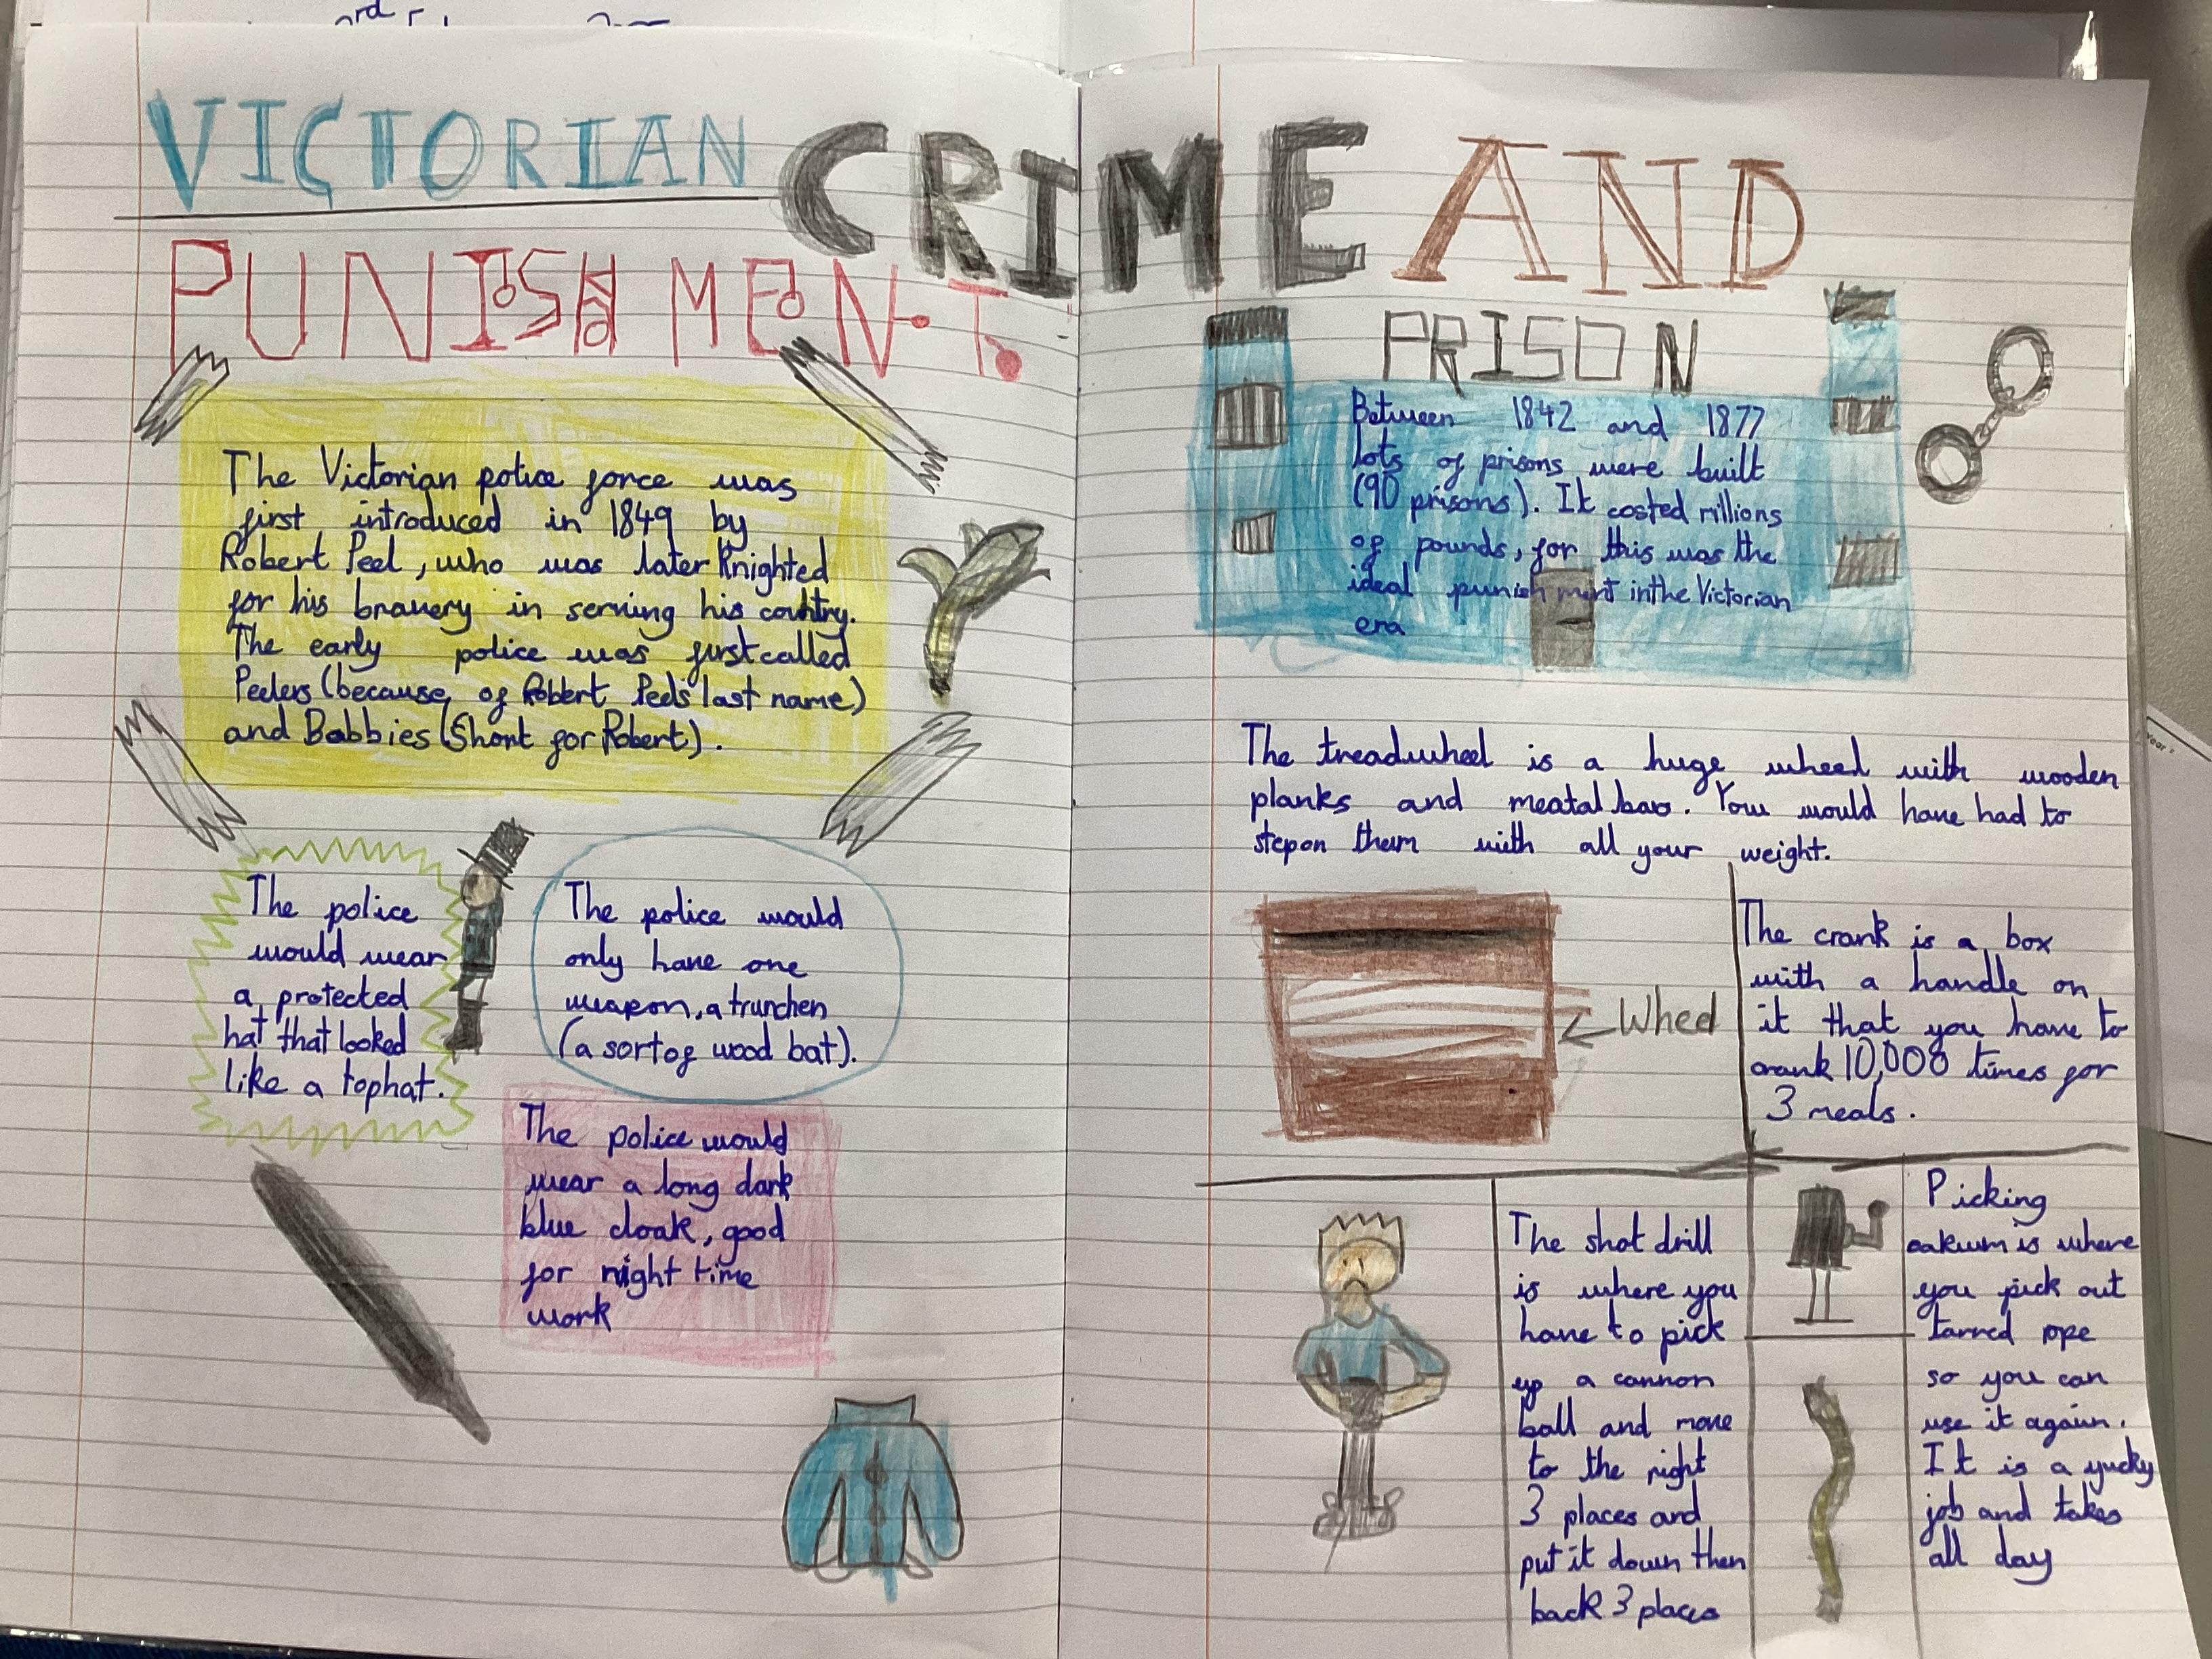 VICTORIAN CRIME AND
PUNISHMENT.
The Victorian police force was
first introduced in 1849 by
Robert Peel, who was later knighted
for his bravery in serving his country.
The early police was first called
Peelers (because of Robert Peels last name)
and Bobbies (Short for Robert).
The police
would wear
a protected
hat that looked
like a tophat.
The police would
only have one
weapon, a trunchen
(a sort of wood bat).
The police would
wear a long dark
blue cloak, good
for night time
work
PRISON
Between 1842 and 1877
lots of prisons were built
(90 prisons). It costed millions
of pounds, for this was the
ideal punishment in the Victorian
era
The treadwheel is a huge wheel with wooden
planks and meatal bars. You would have had to
step on them with all your weight.
Wheel
The crank is a box
with a handle on
it that you have to
crank 10,000 times for
3 meals.
The shot drill
is where you
have to pick
up a cannon
ball and move
to the right
3 places and
put it down then
back 3 places
Picking
oakum is where
you pick out
tarred rope
so you can
use it again.
It is a yucky
job and takes
all day